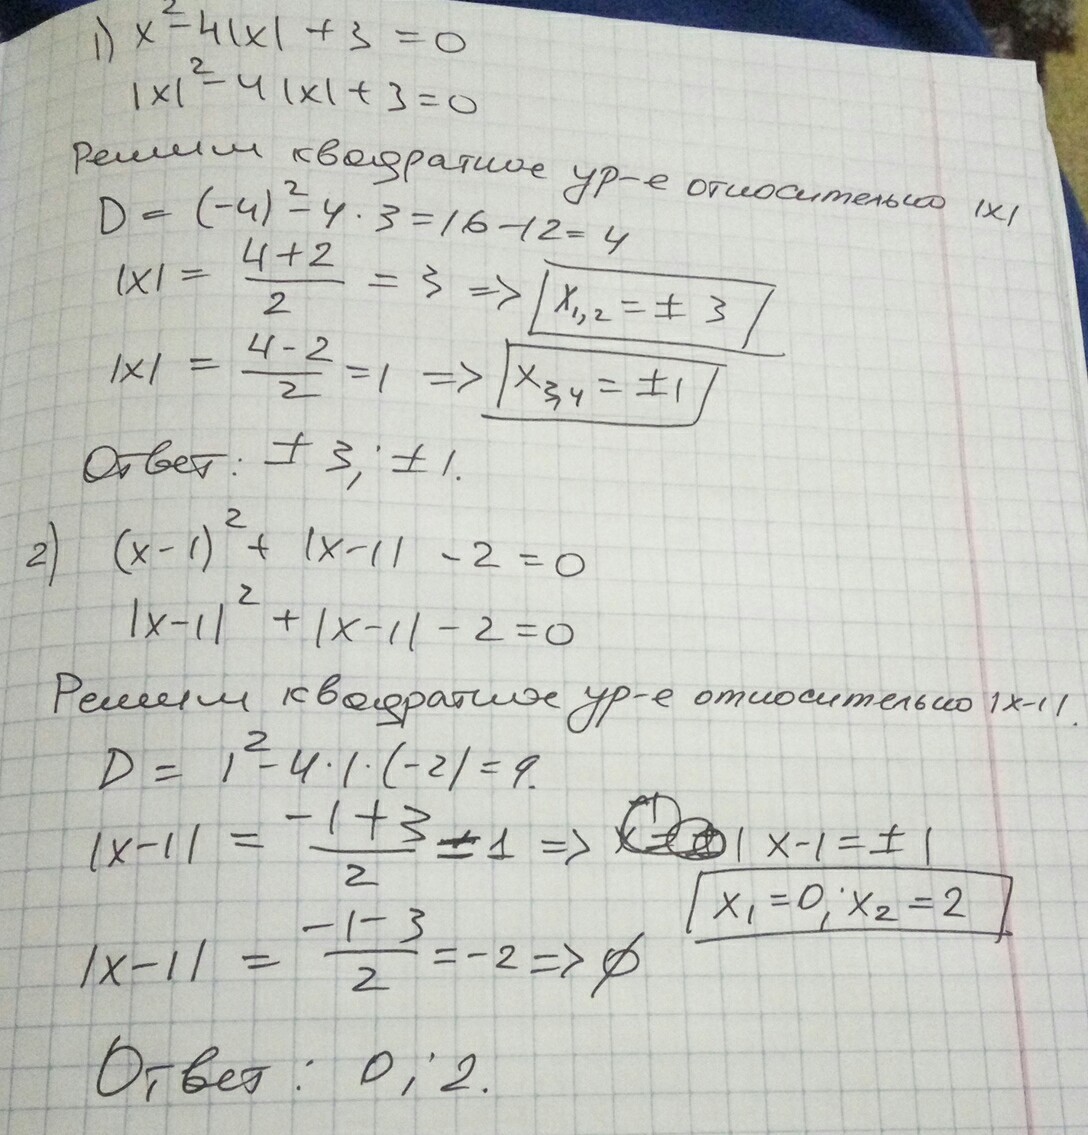 1) x² - 4|x| + 3 = 0
|x|² - 4|x| + 3 = 0
Решим квадратное ур-е относительно |x|
D = (-4)² - 4 · 3 = 16 - 12 = 4
|x| = (4+2)/2 = 3 => x₁,₂ = ± 3
|x| = (4-2)/2 = 1 => x₃,₄ = ±1
Ответ: ± 3; ± 1.
2) (x-1)² + |x-1| - 2 = 0
|x-1|² + |x-1| - 2 = 0
Решим квадратное ур-е относительно |x-1|.
D = 1² - 4 · 1 · (-2) = 9.
|x-1| = (-1+3)/2 = 1 => x-1 = ± 1
x₁ = 0; x₂ = 2
|x-1| = (-1-3)/2 = -2 => ∅
Ответ: 0; 2.